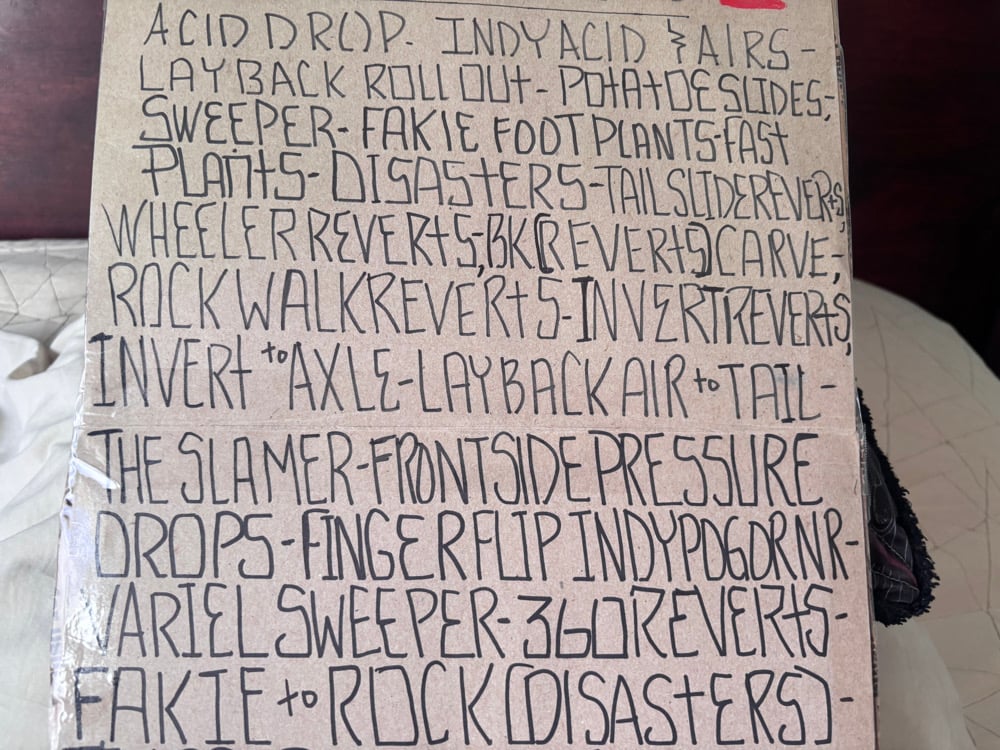 ACID DROP. INDY ACID & AIRS -
LAYBACK ROLL OUT - POTATOE SLIDES,
SWEEPER - FAKIE FOOT PLANTS - FAST
PLANTS - DISASTERS - TAIL SLIDE REVERTS,
WHEELER REVERTS, BK [REVERTS] CARVE,
ROCK WALK REVERTS - INVERT REVERTS,
INVERT to AXLE - LAYBACK AIR to TAIL -
THE SLAMER - FRONTSIDE PRESSURE
DROPS - FINGER FLIP INDY POGO RNR -
VARIEL SWEEPER - 360 REVERTS -
FAKIE to ROCK (DISASTERS) -